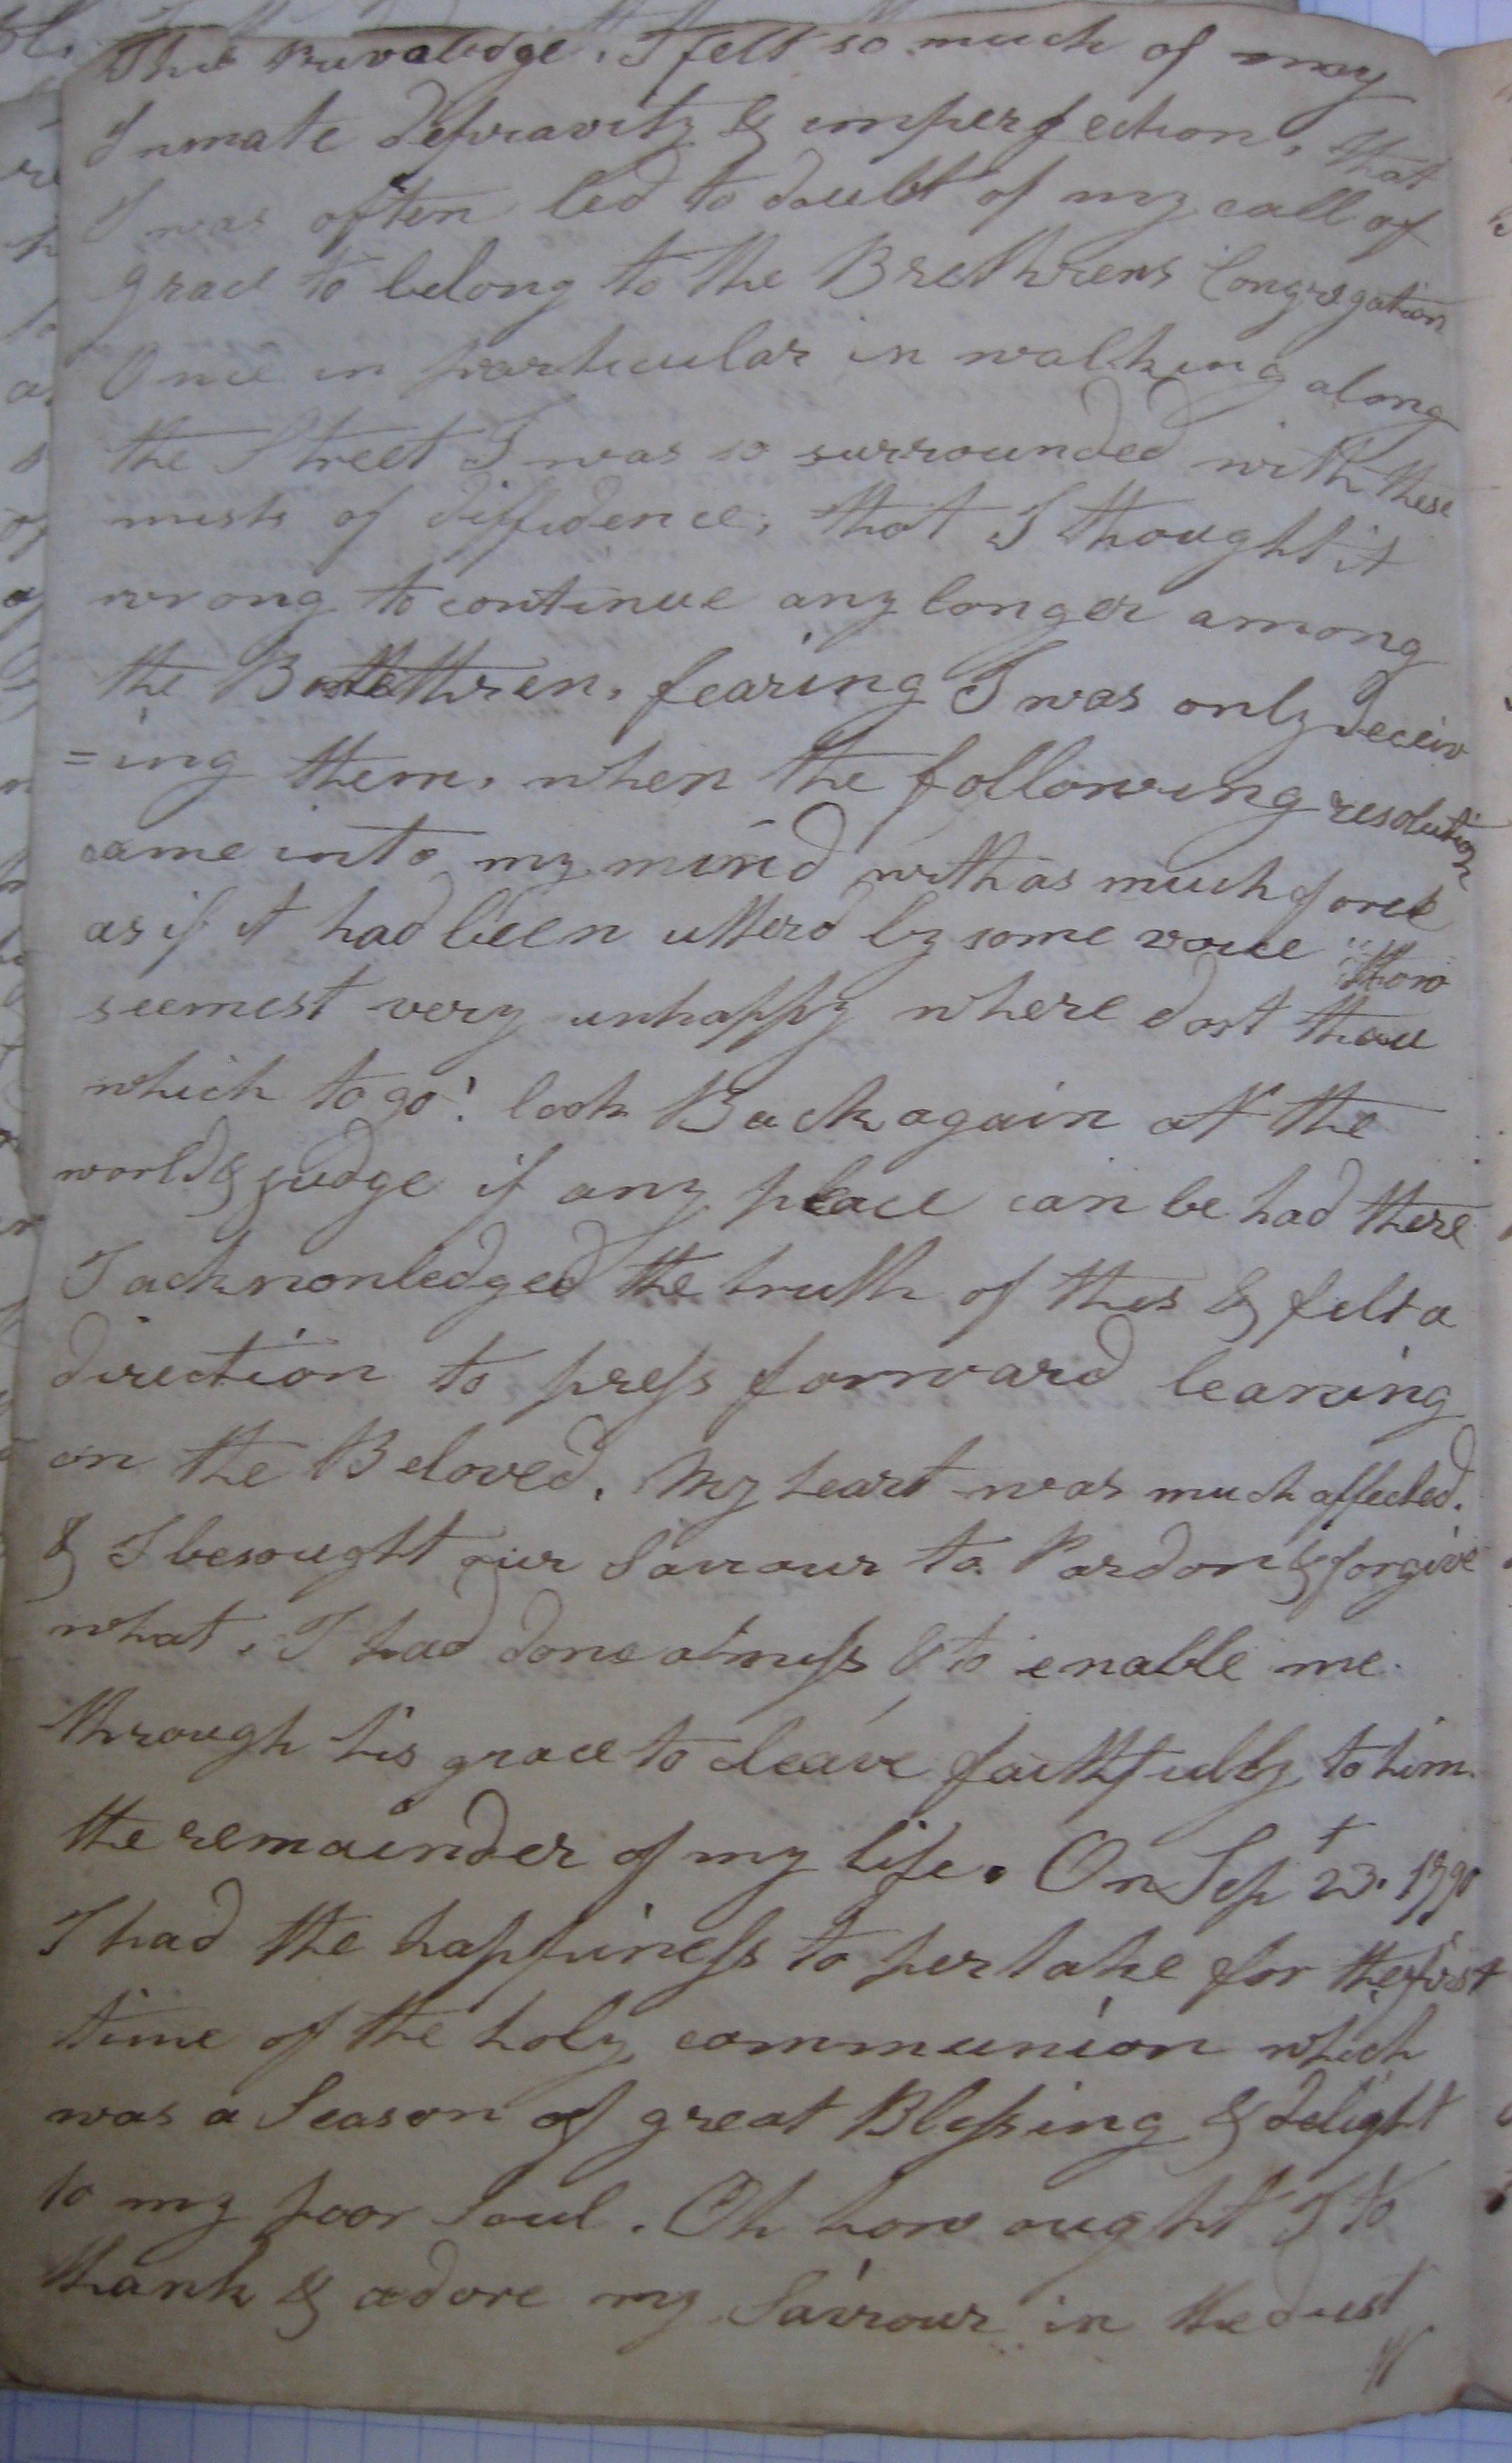 This Privaledge. I felt so much of my
Inmate depravity & imperfection, that
I was often led to doubt of my call of
grace to belong to the Brethrens Congregation
Once in particular in walking along
the Street I was so surrounded with these
mists of diffidence, that I thought it
wrong to continue any longer among
the Brethren, fearing I was only deceiv
=ing them, when the following resolution
came into my mind with as much force
as if it had been utterd by some voice "thow
seemest very unhappy where dost thou
which to go! look Back again at the
world & judge if any place can be had there
I acknowledged the truth of this & felt a
direction to press forward leaning
on the Beloved. My heart was much affected.
& I besought our Saviour to Pardon & forgive
what I had done amiss & to enable me
through his grace to cleave faithfully to him
the remainder of my life. On Sept 23. 1790
I had the happiness to pertake for the first
time of the holy communion which
was a Season of great Blessing & delight
to my poor Soul. Oh how ought I to
thank & adore my Saviour in the dust